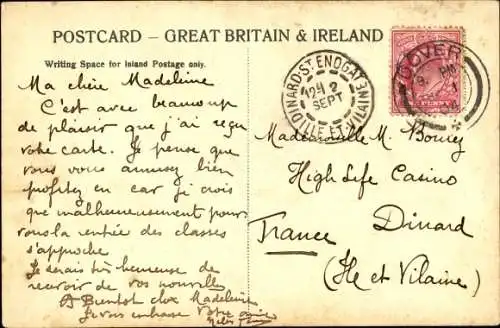 POSTCARD – GREAT BRITAIN & IRELAND
Writing Space for Inland Postage only.
Ma chère Madeleine
C'est avec beaucoup
de plaisir que j'ai reçu
votre carte. Je pense que
vous vous amusez bien
profitez en car je crois
que malheureusement pour
vous la rentrée des classes
s'approche
Je serais très heureuse de
recevoir de vos nouvelles
A Bientôt chère Madeleine
Je vous embrasse Votre amie
DINARD-ST ENOGAT
ILLE-ET-VILAINE
2
SEPT
DOVER
PM
Mademoiselle M.
High Life Casino
Dinard
France
(Ile et Vilaine)